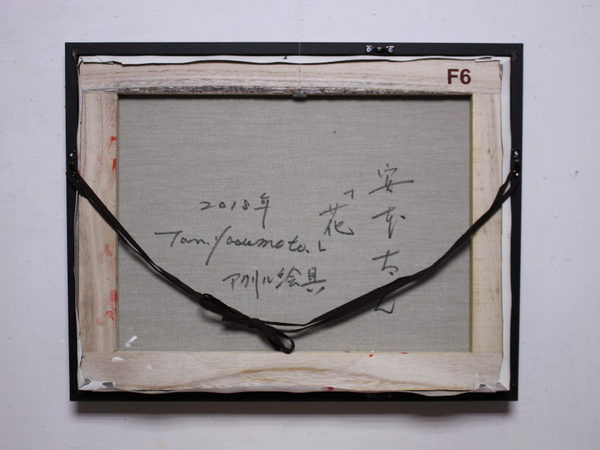 F6
安本たん
「花」
2018年
Tan.Yasumoto.
アクリル絵具